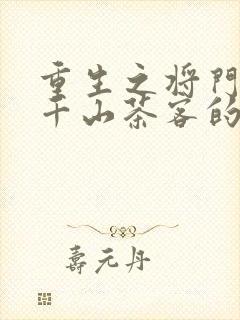 重生之将门
千山茶客的
寿元丹